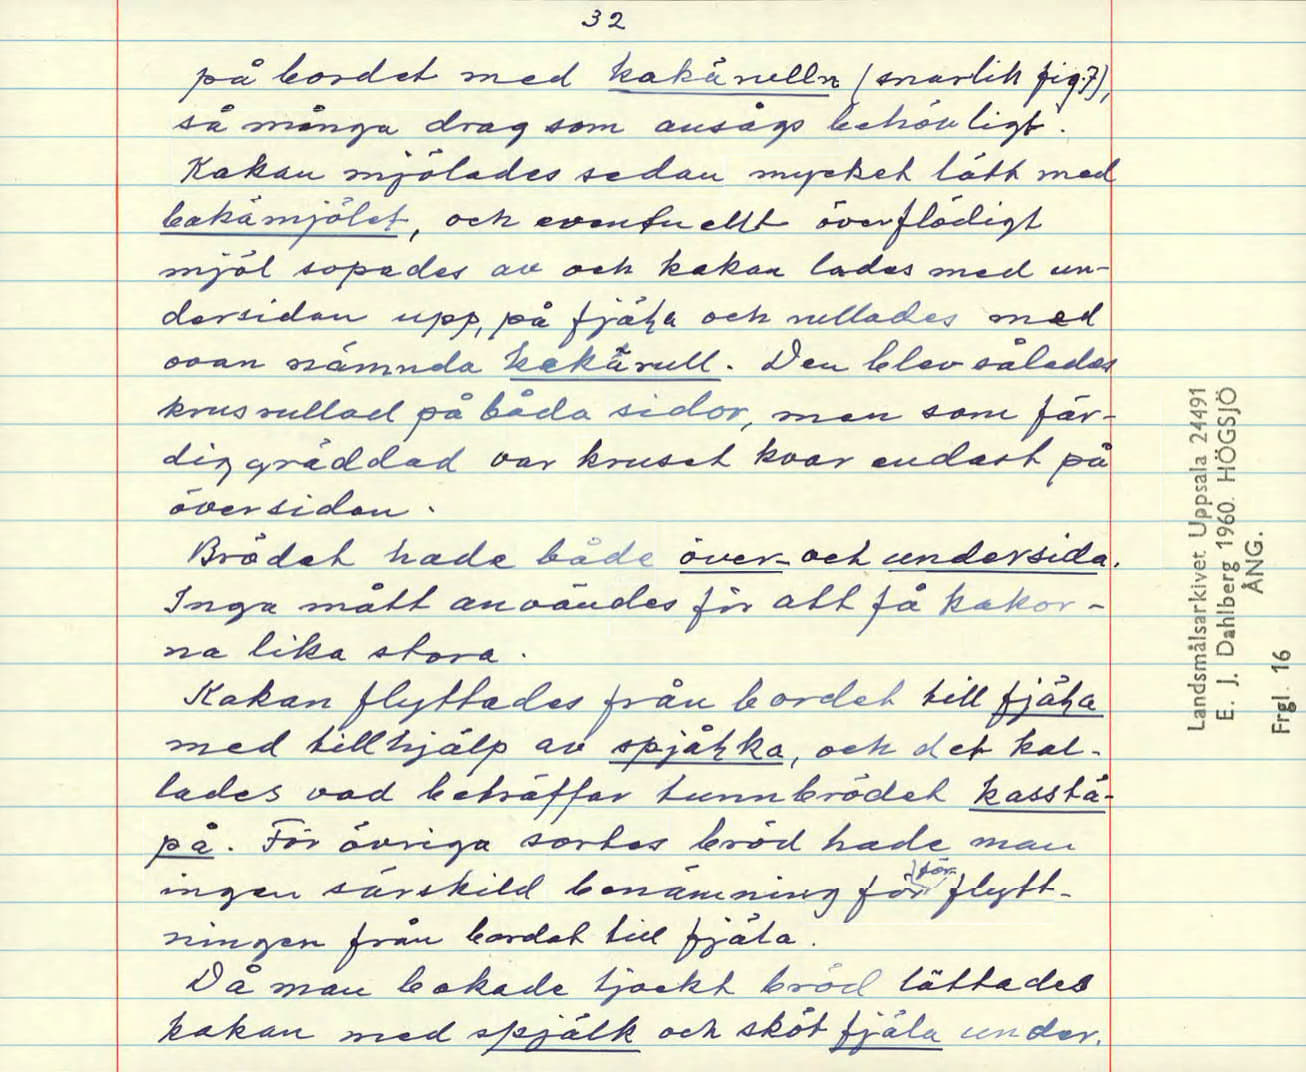 32
på bordet med kakärulln (snarlik fig.7),
så många drag som ansågs behövligt.
Kakan mjölades sedan mycket lätt med
bakämjölet, och eventuellt överflödigt
mjöl sopades av och kakan lades med un-
dersidan upp, på fjäḷa och rullades med
ovan nämnda kakärull. Den blev således
krusrullad på båda sidor, men som fär-
diggräddad var kruset kvar endast på
översidan.
Brödet hade både över- och undersida.
Inga mått användes för att få kakor-
na lika stora.
Kakan flyttades från bordet till fjäḷa
med tillhjälp av spjåḷka, och det kal-
lades vad beträffar tunnbrödet kasstä-
på. För övriga sortes bröd hade man
ingen särskild benämning för flytt-
ningen från bordet till fjäla.
Då man bakade tjockt bröd lättades
kakan med spjälk och sköt fjäla under.
Landsmålsarkivet Uppsala 24491
E. J. Dahlberg 1960. HÖGSJÖ
ÅNG.
Frgl. 16